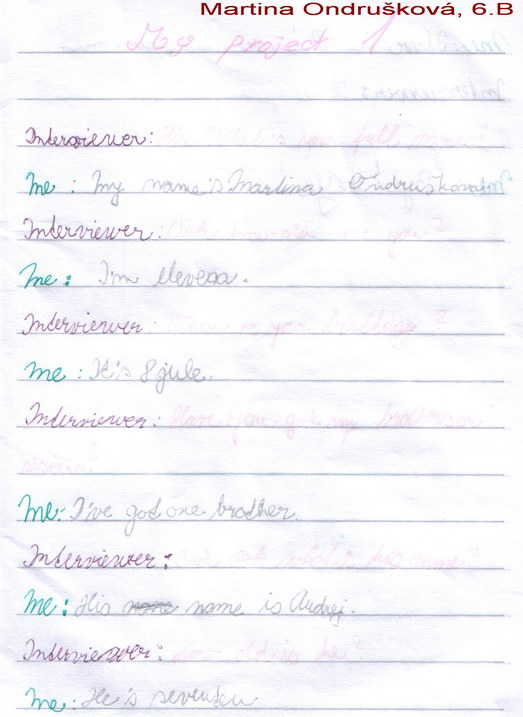 Martina Ondrušková, 6.B
My project 1
Interviewer: Hi. What is you full name?
Me: My name's Martina Ondrušková
Interviewer: how old are you?
Me: I'm eleven.
Interviewer: When is you birthday?
Me: It's 8 jule.
Interviewer: Have you got any brothers or
sisters?
Me: I've got one brother.
Interviewer: what is his name?
Me: His name is Andrej.
Interviewer: how old is he?
Me: He is seventeen